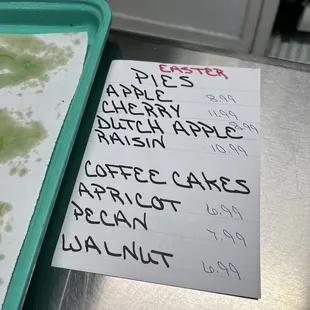 EASTER
PIES
APPLE 8.99
CHERRY 11.99
DUTCH APPLE 8.99
RAISIN 10.99
COFFEE CAKES
APRICOT 6.99
PECAN 7.99
WALNUT 6.99